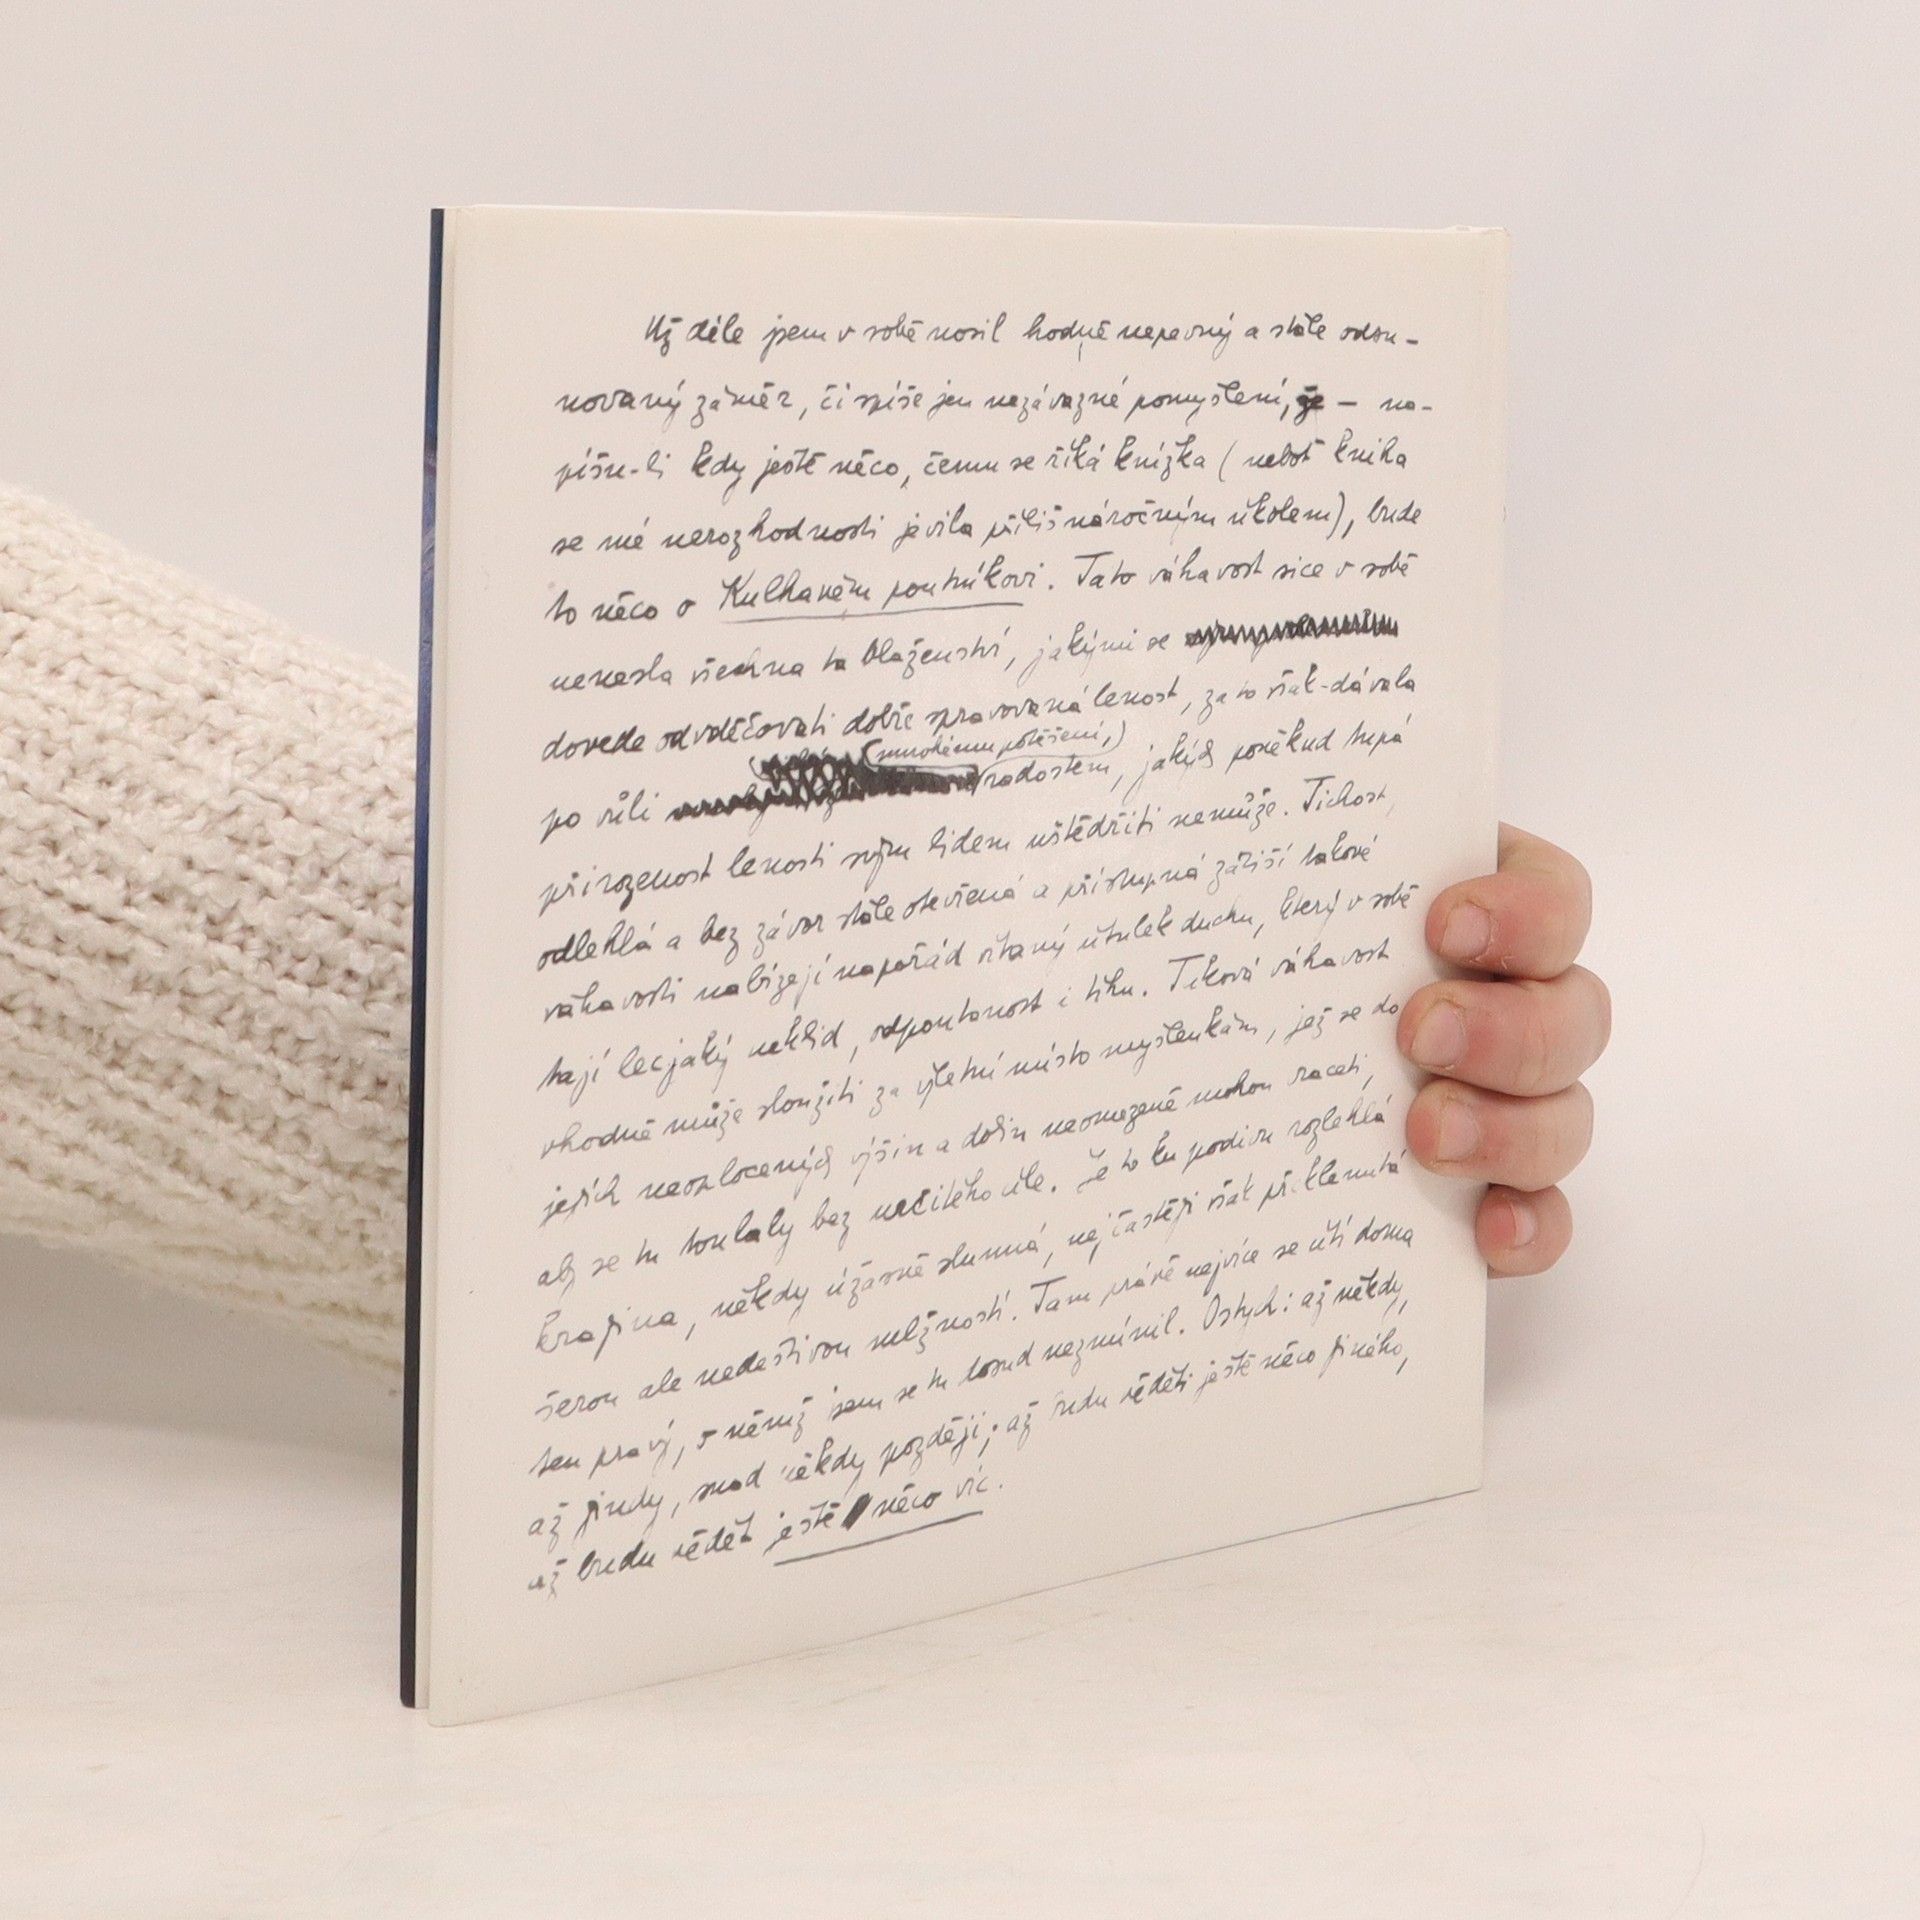 Už déle jsem v sobě nosil hodně nepevný a stále odsu-
novaný záměr, či spíše jen nezávazné pomyšlení, že — na-
píšu-li kdy ještě něco, čemu se říká knížka (neboť kniha
se mé nerozhodnosti jevila příliš náročným úkolem), bude
to něco o Kulhavém poutníkovi. Tato váhavost sice v sobě
nenesla všechna ta blaženství, jakými se
dovede odvděčovati dobře spravovaná lenost, za to však dávala
(mnohému potěšení,)
po vůli radostem, jakých poněkud tupá
přirozenost lenosti svým lidem uštědřiti nemůže. Tichost
odlehlá a bez závor stále otevřená a přístupná zátiší takové
váhavosti nabízejí napořád vítaný útulek duchu, který v sobě
tají lecjaký neklid, odpoutanost i tíhu. Taková váhavost
vhodně může sloužiti za výletní místo myšlenkám, jež se do
jejích neoplocených výšin a dolin neomezeně mohou vraceti,
aby se tu toulaly bez určitého cíle. Je to tu podivu rozlehlá
krajina, někdy úžasně slunná, nejčastěji však překlenutá
šerou ale nedeštivou mlžností. Tam právě nejvíce se cítí doma
ten pravý, o němž jsem se tu dosud nezmínil. Ostych: až někdy,
až jindy, snad někdy později; až budu věděti ještě něco jiného,
až budu vědět ještě něco víc.